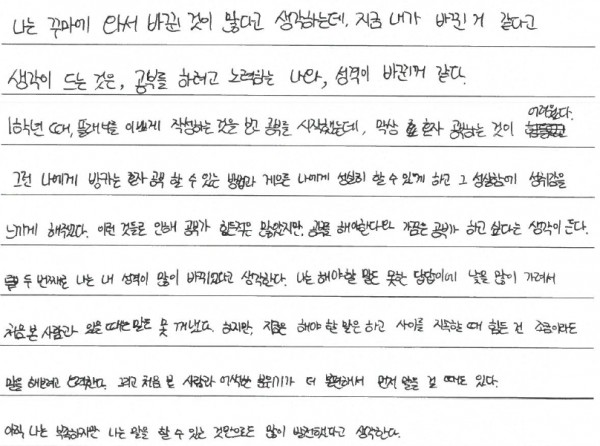 나는 꾸마에 와서 바뀐 것이 많다고 생각하는데, 지금 내가 바뀐 거 같다고
생각이 드는 것은, 공부를 하려고 노력하는 나와, 성격이 바뀐거 같다.
1학년 때, 또래 애들 이 작성하는 것을 보고 공부를 시작했는데, 막상 혼자 공부하는 것이 어려웠다.
그런 나에게 방카는 혼자 공부 할 수 있는 방법과 게으른 나에게 성실히 할 수 있게 하고 그 성실함에 성취감을
느끼게 해주었다. 이런 것들로 인해 공부가 힘들적은 많았지만, 공부를 해야한다와 가끔은 공부가 하고 싶다는 생각이 든다.
두 번째로 나는 내 성격이 많이 바뀌었다고 생각한다. 나는 해야할 말도 못한 답답이에 낯을 많이 가려서
처음 본 사람과 있을 때는 말도 못 꺼냈다. 하지만, 지금은 해야 할 말은 하고 사이를 지속할 때 힘든 건 조금이라도
말을 해보려고 노력한다. 그리고 처음 본 사람과 어색한 분위기가 더 불편해서 먼저 말을 걸 때도 있다.
아직 나는 부족하지만 나는 말을 할 수 있는 것만으로도 많이 발전했다고 생각한다.